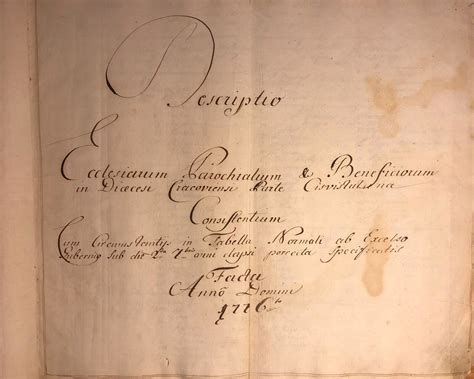 Descriptio
Ecclesiarum Parochialium & Beneficiorum
in Diæcesi Cracoviensi Parte Cisvistulana
Consistentium
Cum Circumstantijs in Tabella Normali ab Excelso
Gubernio sub die 2da 7bris anni elapsi porrecta specificatis
Facta
Anno Domini
1776to